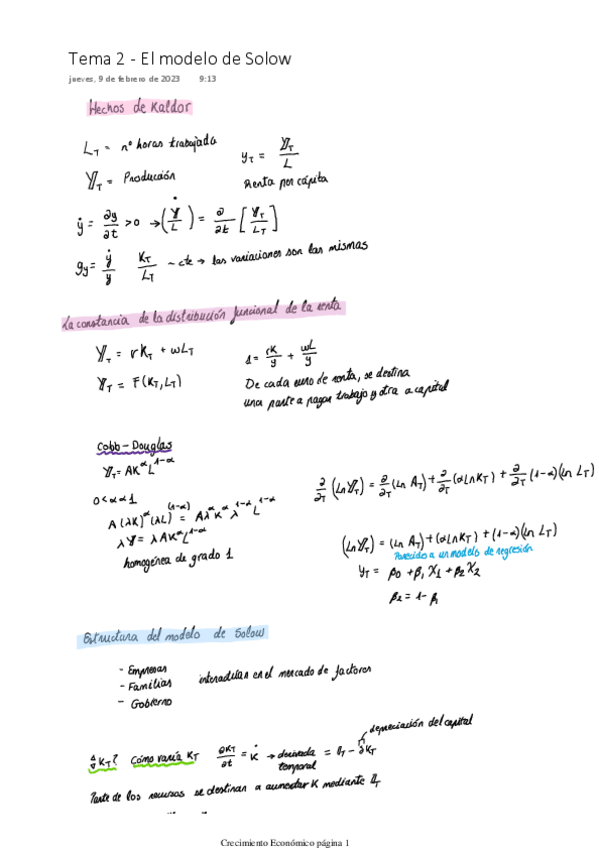 Tema 2 - El modelo de Solow
jueves, 9 de febrero de 2023 9:13
Hechos de Kaldor
L_T = nº horas trabajada
Y_T = Producción
y_T = Y_T / L
Renta por cápita
ẏ = ∂y/∂t > 0 → (Ẏ/L) = ∂/∂t [Y_T/L_T]
g_y = ẏ/y K_T/L_T ~ cte → las variaciones son las mismas
La constancia de la distribución funcional de la renta
Y_T = rK_T + wL_T
Y_T = F(K_T, L_T)
1 = rK/y + wL/y
De cada euro de renta, se destina
una parte a pagar trabajo y otra a capital
Cobb-Douglas
Y_T = AK^α L^(1-α)
0 < α < 1
A(λK)^α (λL)^(1-α) = Aλ^α K^α λ^(1-α) L^(1-α)
λY = λAK^α L^(1-α)
homogénea de grado 1
∂/∂T (Ln Y_T) = ∂/∂T (Ln A_T) + ∂/∂T (αLnK_T) + ∂/∂T (1-α)(Ln L_T)
(Ln Y_T) = (Ln A_T) + (αLnK_T) + (1-α)(Ln L_T)
Parecido a un modelo de regresión
y_T = β0 + β1 X1 + β2 X2
β2 = 1 - β1
Estructura del modelo de Solow
- Empresas
- Familias
- Gobierno
interactúan en el mercado de factores
K_T? Cómo varía K_T ∂K_T/∂t = K̇ → derivada temporal = I_T - ∂K_T
depreciación del capital
Parte de los recursos se destinan a aumentar K mediante I_T
Crecimiento Económico página 1